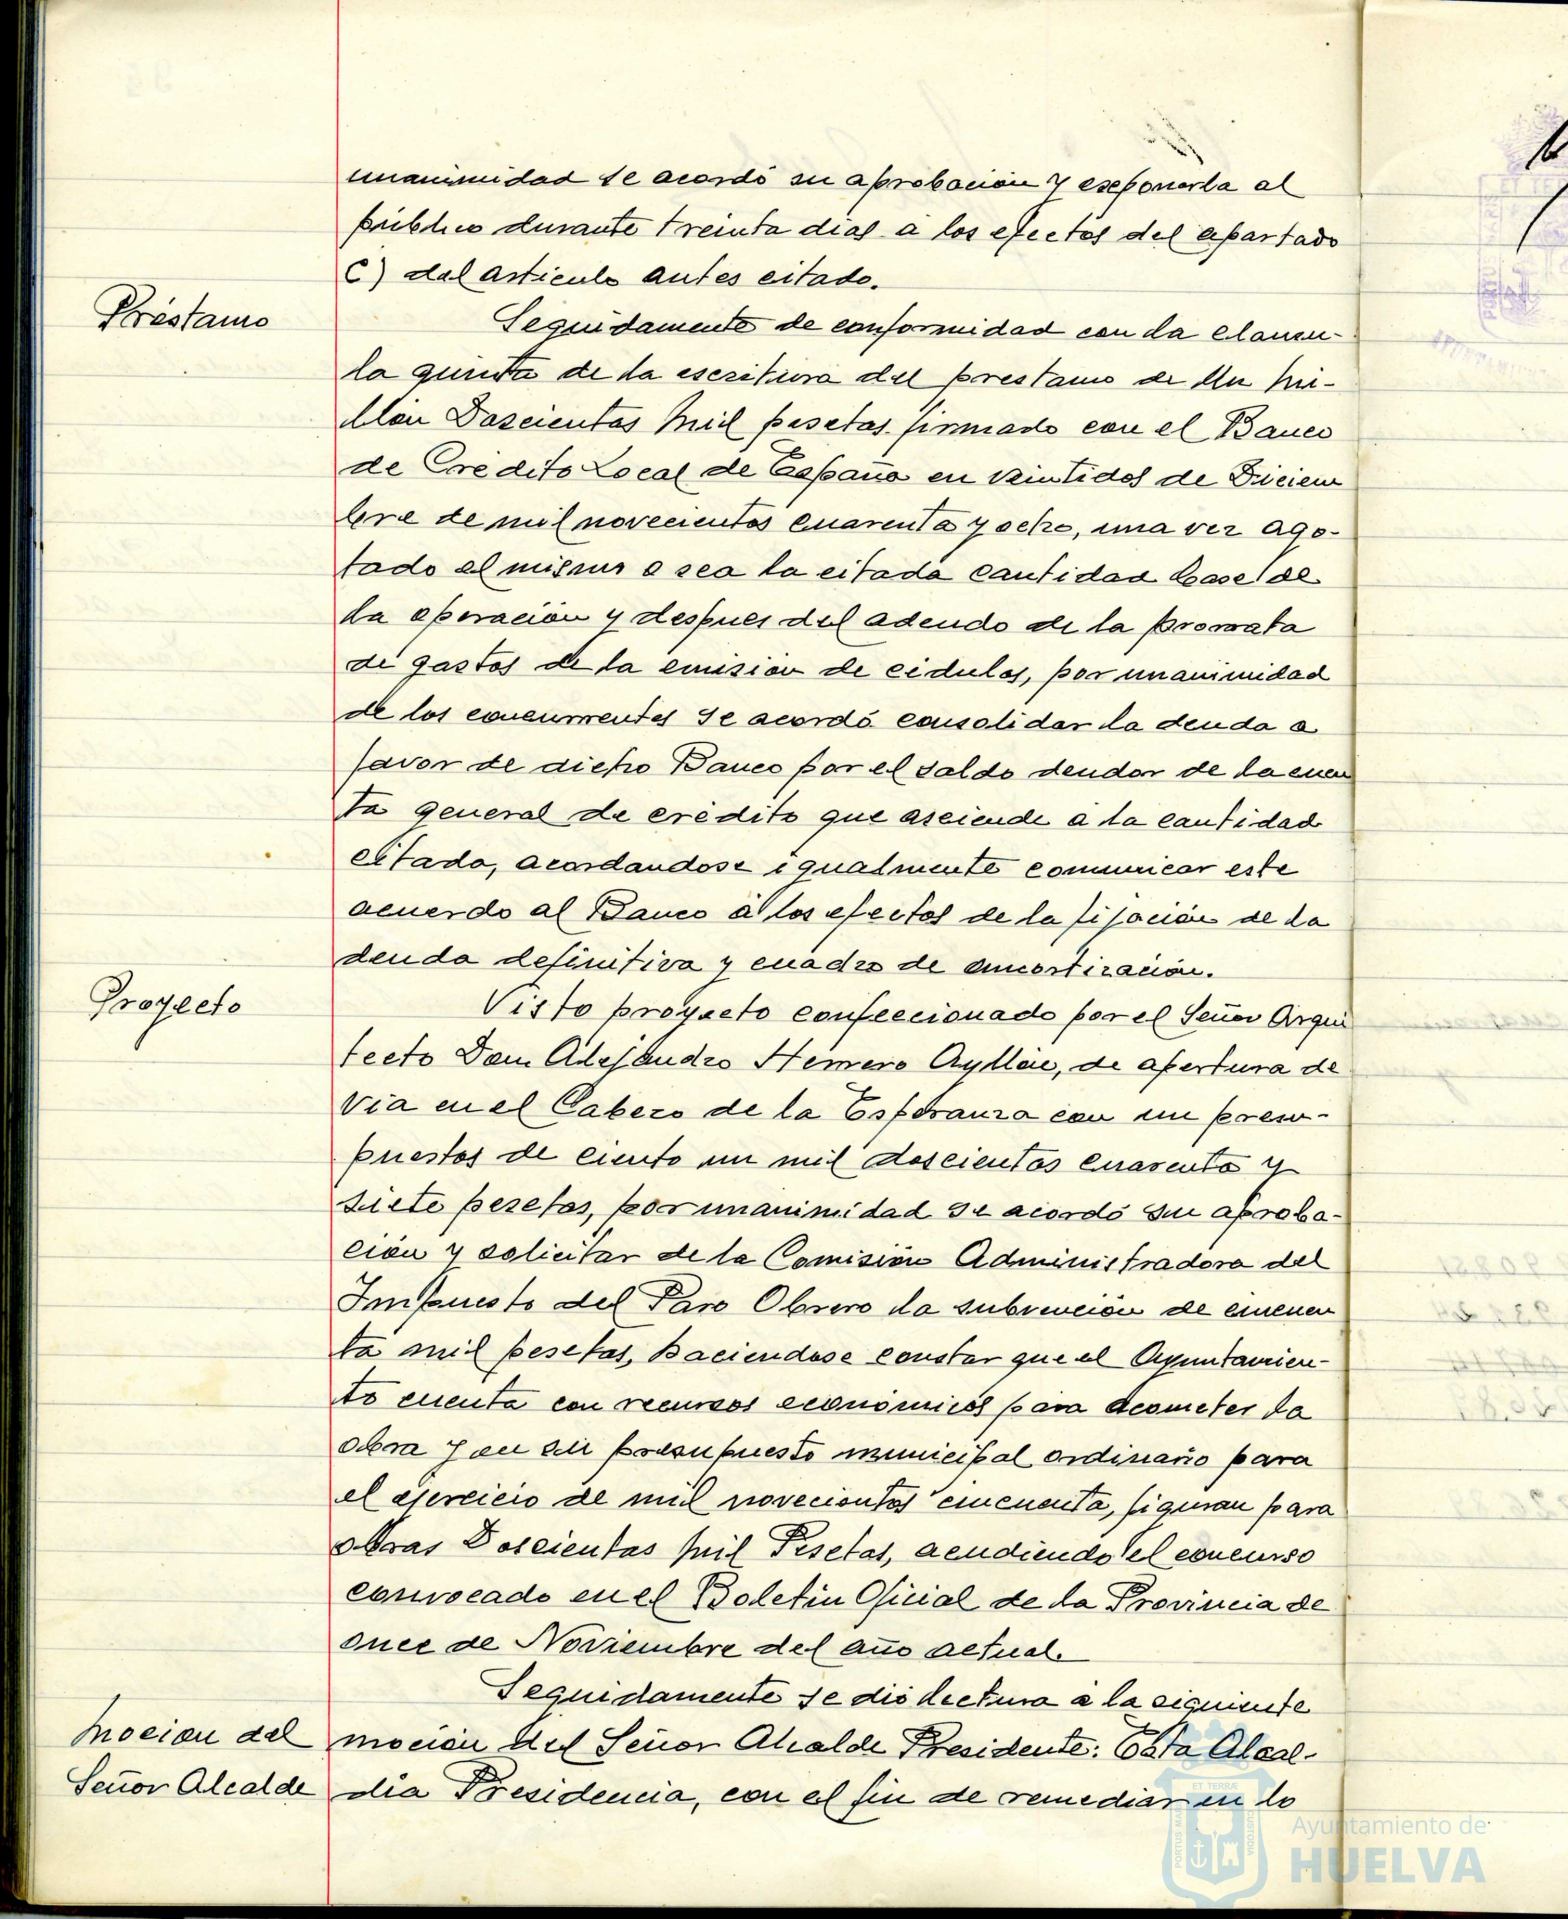 unanimidad se acordó su aprobación y exponerla al
público durante treinta dias a los efectos del apartado
C) del articulo antes citado.
Préstamo
Seguidamente de conformidad con la clausu-
la quinta de la escritura del prestamo de Un Mi-
llón Doscientas Mil pesetas firmado con el Banco
de Credito Local de España en veintidos de Diciem
bre de mil novecientos cuarenta y ocho, una vez ago-
tado el mismo o sea la citada cantidad base de
la operación y despues del adeudo de la prorrata
de gastos de la emision de cedulas, por unanimidad
de los concurrentes se acordó consolidar la deuda a
favor de dicho Banco por el saldo deudor de la cuen
ta general de crédito que asciende a la cantidad
citada, acordandose igualmente comunicar este
acuerdo al Banco a los efectos de la fijación de la
deuda definitiva y cuadro de amortización.
Proyecto
Visto proyecto confeccionado por el Señor Arqui
tecto Don Alejandro Herrero Ayllón, de apertura de
Via en el Cabezo de la Esperanza con un presu-
puestos de ciento un mil doscientas cuarenta y
siete pesetas, por unanimidad se acordó su aproba-
ción y solicitar de la Comisión Administradora del
Impuesto del Paro Obrero la subvención de cincuen
ta mil pesetas, haciendose constar que el Ayuntamien-
to cuenta con recursos económicos para acometer la
obra y en su presupuesto municipal ordinario para
el ejercicio de mil novecientos cincuenta, figuran para
obras Doscientas Mil Pesetas, acudiendo al concurso
convocado en el Boletin Oficial de la Provincia de
once de Noviembre del año actual.
Seguidamente se dió lectura a la siguiente
Mocion del
Señor Alcalde
moción del Señor Alcalde Presidente: Esta Alcal-
dia Presidencia, con el fin de remediar en lo
Ayuntamiento de
HUELVA